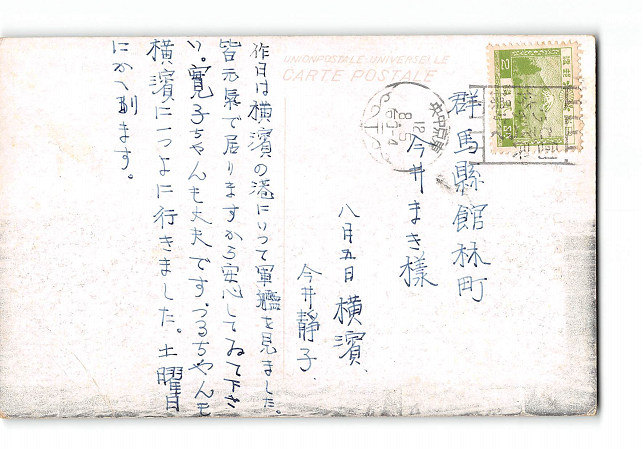 UNION POSTALE UNIVERSELLE
CARTE POSTALE
群馬縣館林町
今井まき様
八月五日 横濱
今井靜子
昨日は横濱の港にいつて軍艦を見ました。
皆元氣で居りますから安心してゐて下さ
い。寛子ちゃんも丈夫です。つるちやんも
横濱に一つよに行きました。土曜日
にかへります。